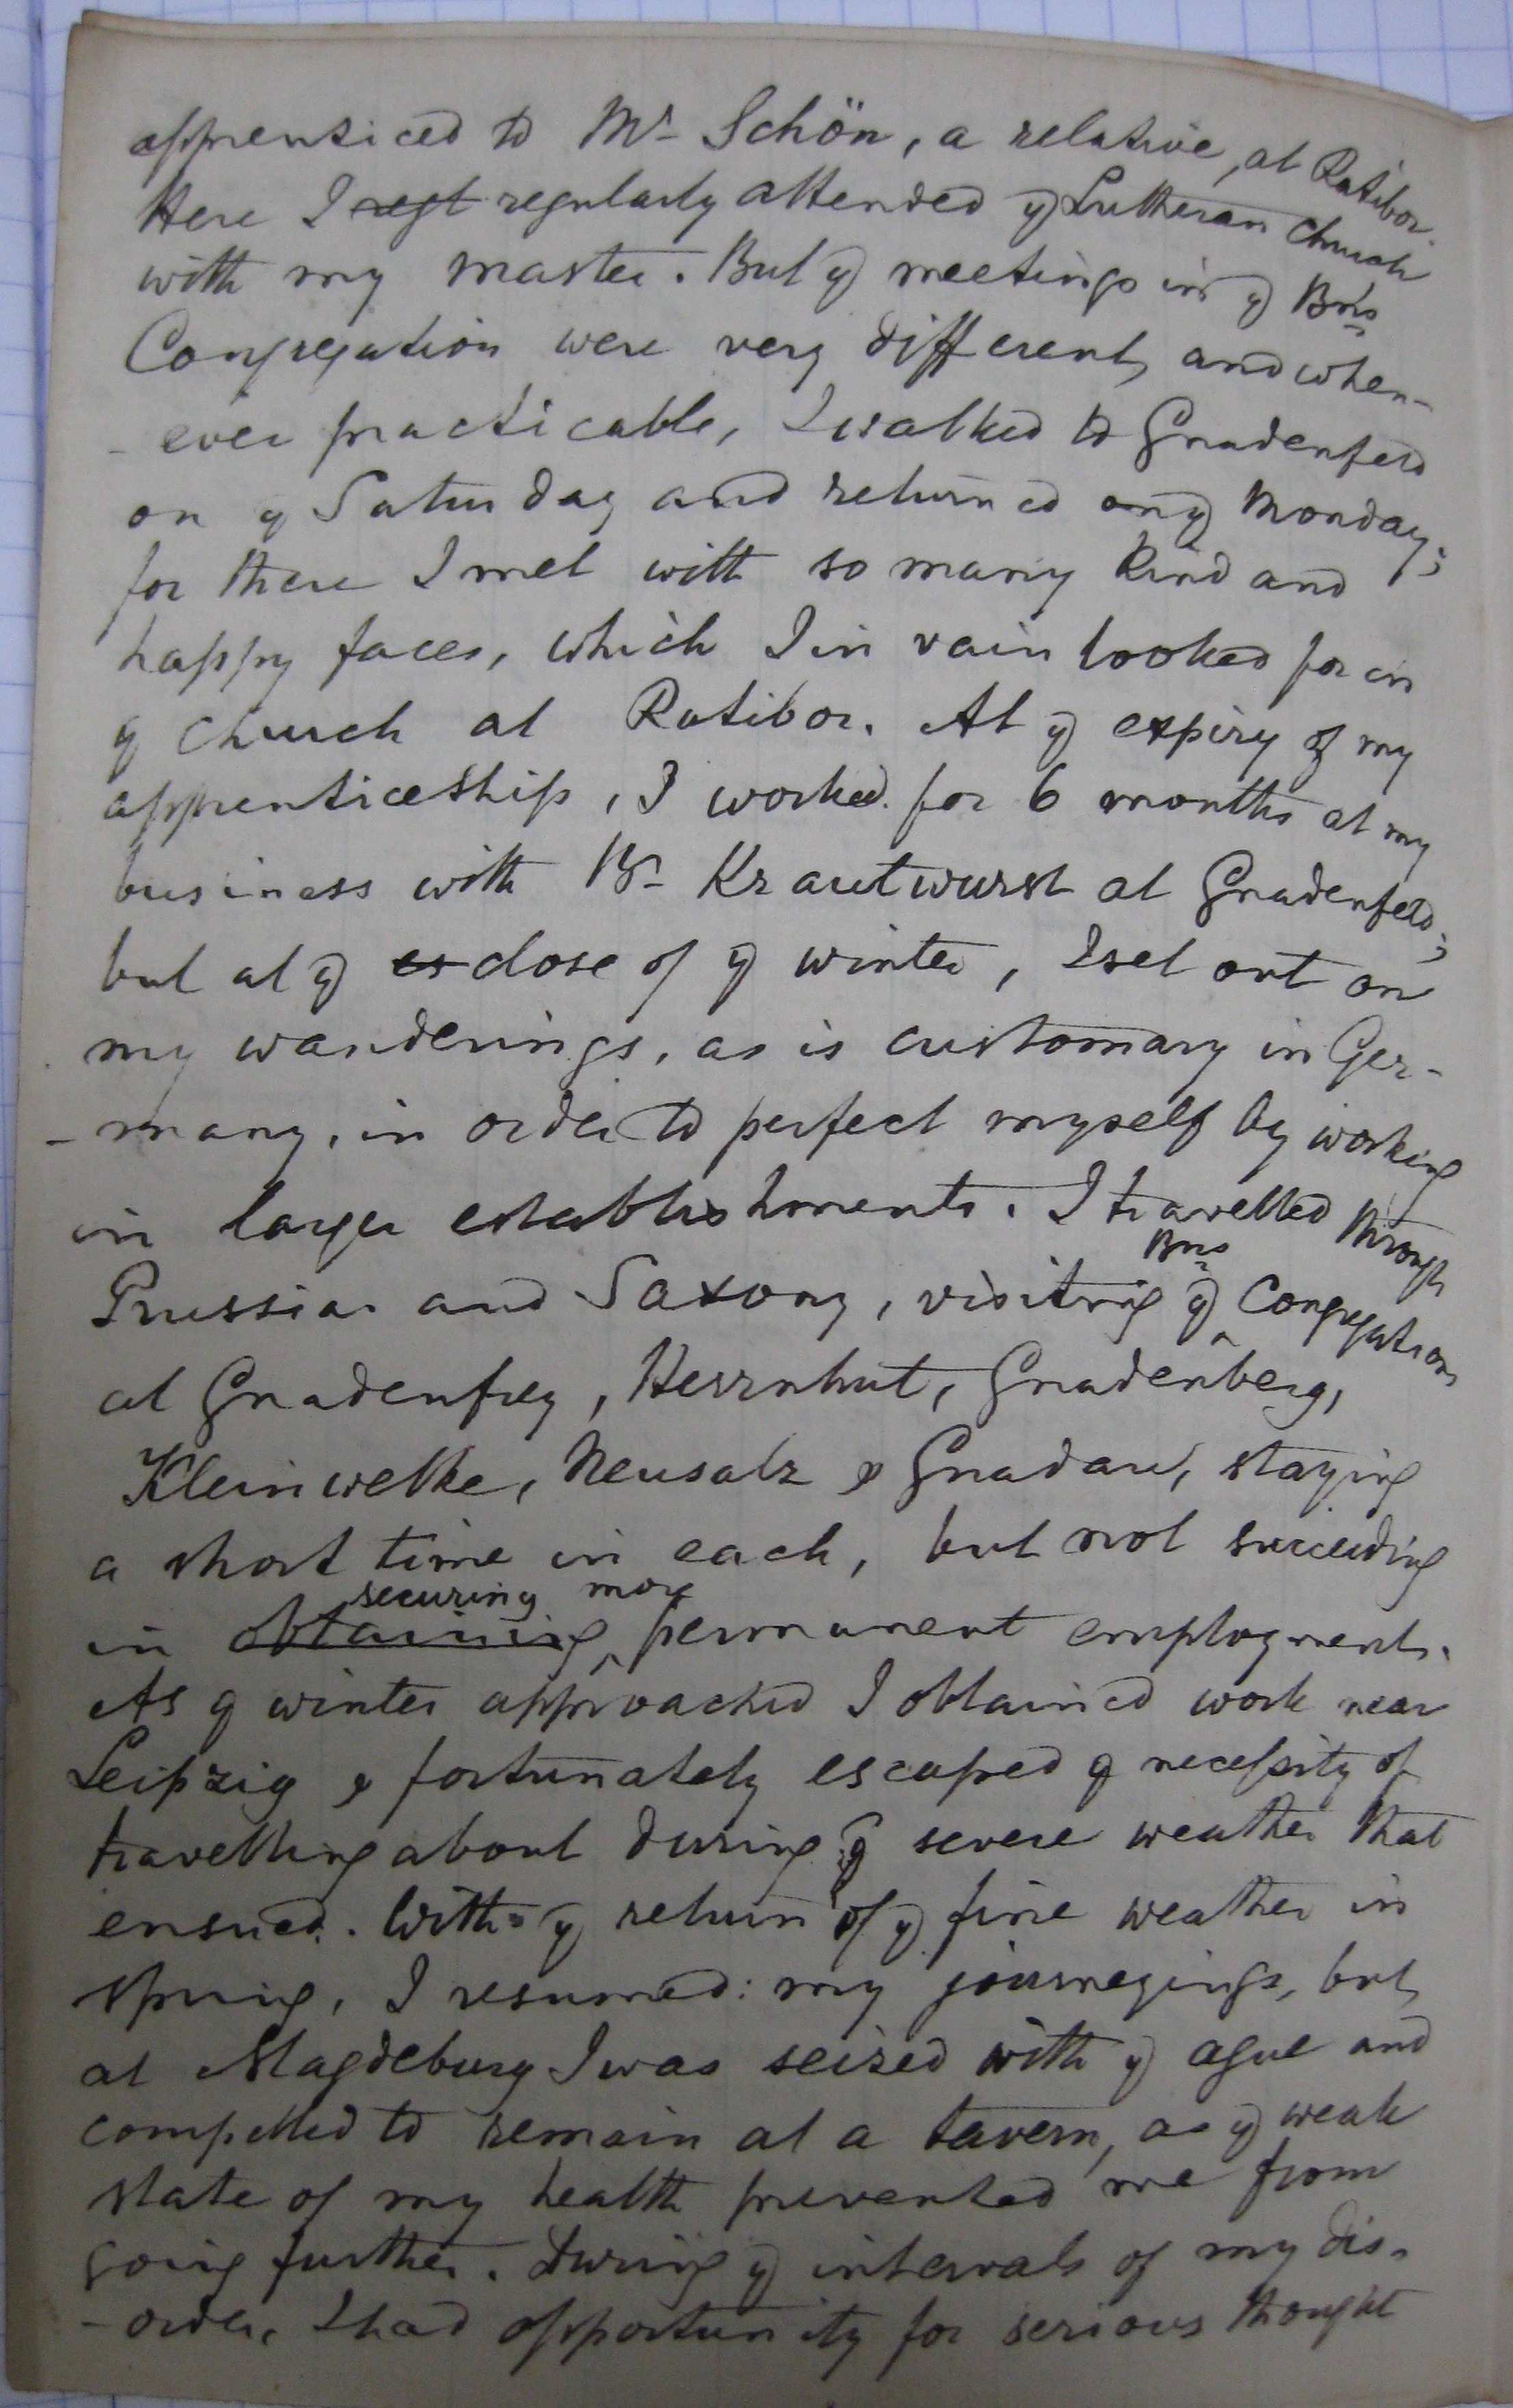 apprenticed to Mr Schön, a relative, at Ratibor.
Here I regl regularly attended y Lutheran Church
with my master. But y meetings in y Brns
Congregation were very different, and when-
-ever practicable, I walked to Gnadenfeld
on y Saturday and returned on y Monday;
for there I met with so many kind and
happy faces, which I in vain looked for in
y Church at Ratibor. At y expiry of my
apprenticeship, I worked for 6 months at my
business with Br Krautwurst at Gnadenfeld;
but at y close of y winter, I set out on
my wanderings, as is customary in Ger-
-many, in order to perfect myself by working
in larger establishments. I travelled through
Prussia and Saxony, visiting y Brns Congregations
at Gnadenfrey, Herrnhut, Gnadenberg,
Kleinwelke, Neusalz & Gnadau, staying
a short time in each, but not succeeding
in obtaining securing more permanent employment.
As y winter approached I obtained work near
Leipzig & fortunately escaped y necessity of
travelling about during y severe weather that
ensued. With y return of y fine weather in
spring, I resumed my journeyings, but,
at Magdeburg I was seized with y ague and
compelled to remain at a tavern, as y weak
state of my health prevented me from
going further. During y intervals of my dis-
-order, I had opportunity for serious thought